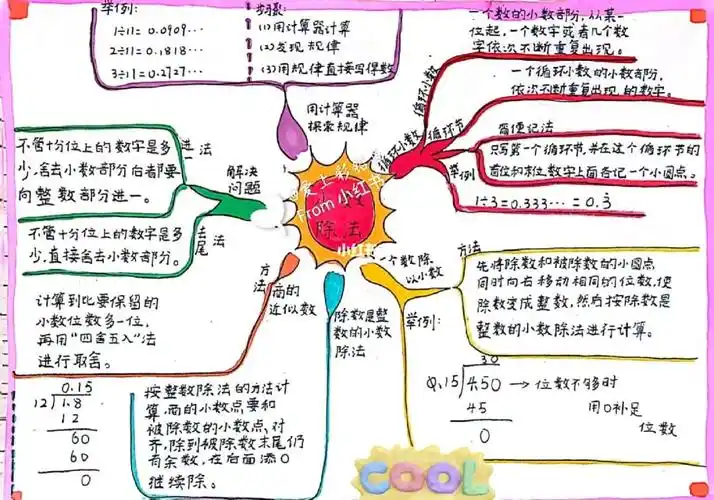 举例:
1÷11=0.0909…
2÷11=0.1818…
3÷11=0.2727…
(1)用计算器计算
(2)发现规律
(3)用规律直接写得数
用计算器
探索规律
一个数的小数部分,从某一
位起,一个数字或者几个数
字依次不断重复出现。
循环小数
一个循环小数的小数部分,
依次不断重复出现的数字。
循环节
循环小数
简便记法
只写第一个循环节,并在这个循环节的
首位和末位数字上面各记一个小圆点。
举例
1÷3=0.333…=0.3̇
不管十分位上的数字是多
少,舍去小数部分后都要
向整数部分进一。
进一法
解决
问题
不管十分位上的数字是多
少,直接舍去小数部分。
去尾法
@爱上彩
From 小红书
小数
除法
小红书
方法
商的
近似数
计算到比要保留的
小数位数多一位,
再用“四舍五入”法
进行取舍。
除数是整
数的小数
除法
按整数除法的方法计
算,商的小数点要和
被除数的小数点对
齐,除到被除数末尾仍
有余数,在后面添0
继续除。
0.15
12 1.8
12
60
60
0
一个数除
以小数
方法
先将除数和被除数的小圆点
同时向右移动相同的位数,使
除数变成整数,然后按除数是
整数的小数除法进行计算。
举例:
30
0.15 4.50 → 位数不够时
45 用0补足
0 位数
COOL